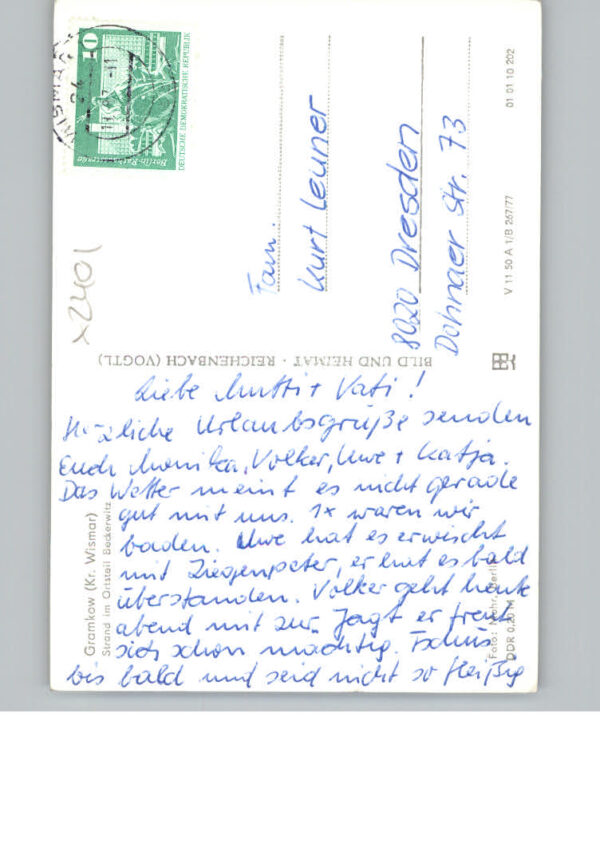 Liebe Mutti + Vati!
Herzliche Urlaubsgrüße senden
Euch Monika, Volker, Uwe + Katja.
Das Wetter meint es nicht gerade
gut mit uns. 1x waren wir
baden. Uwe hat es erwischt
mit Ziegenpeter, er hat es bald
überstanden. Volker geht heute
abend mit zur Jagt er freut
sich schon mächtig. Tschüs
bis bald und seid nicht so fleißig
Fam.
Kurt Leuner
8020 Dresden
Dohnaer Str. 73
x2401
10
DEUTSCHE DEMOKRATISCHE REPUBLIK
WISMAR
BILD UND HEIMAT · REICHENBACH (VOGTL)
Gramkow (Kr. Wismar)
Strand im Ortsteil Beckerwitz
Foto:
DDR
V 11 50 A 1/B 267/77
01 01 10 202